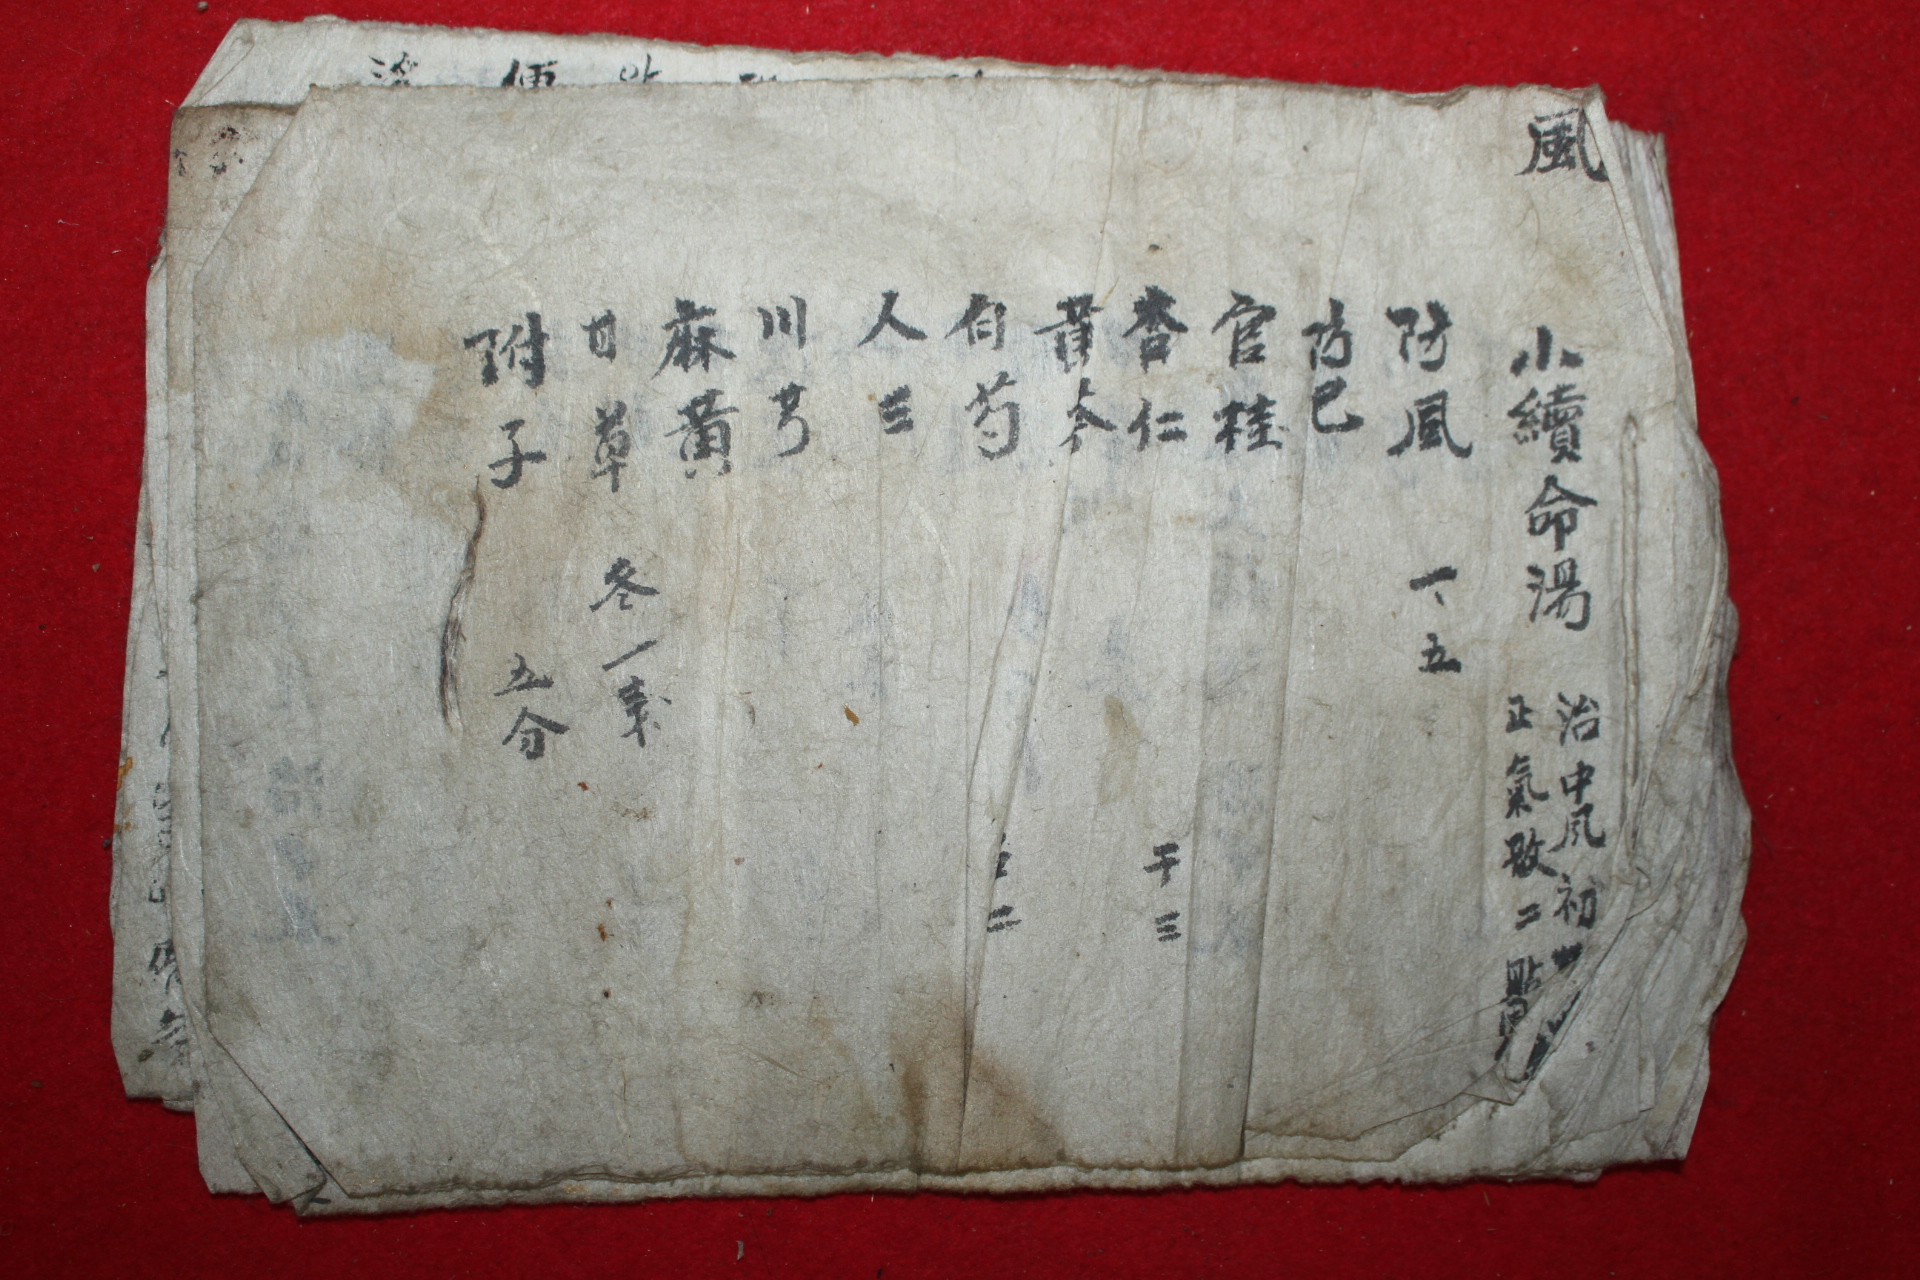 風
小續命湯 治中風初
正氣散二貼
防風 一、五
防己
官桂
杏仁 干三
黃芩
白芍 召二
人三
川芎
麻黃
甘草 各一戔
附子 五分
便